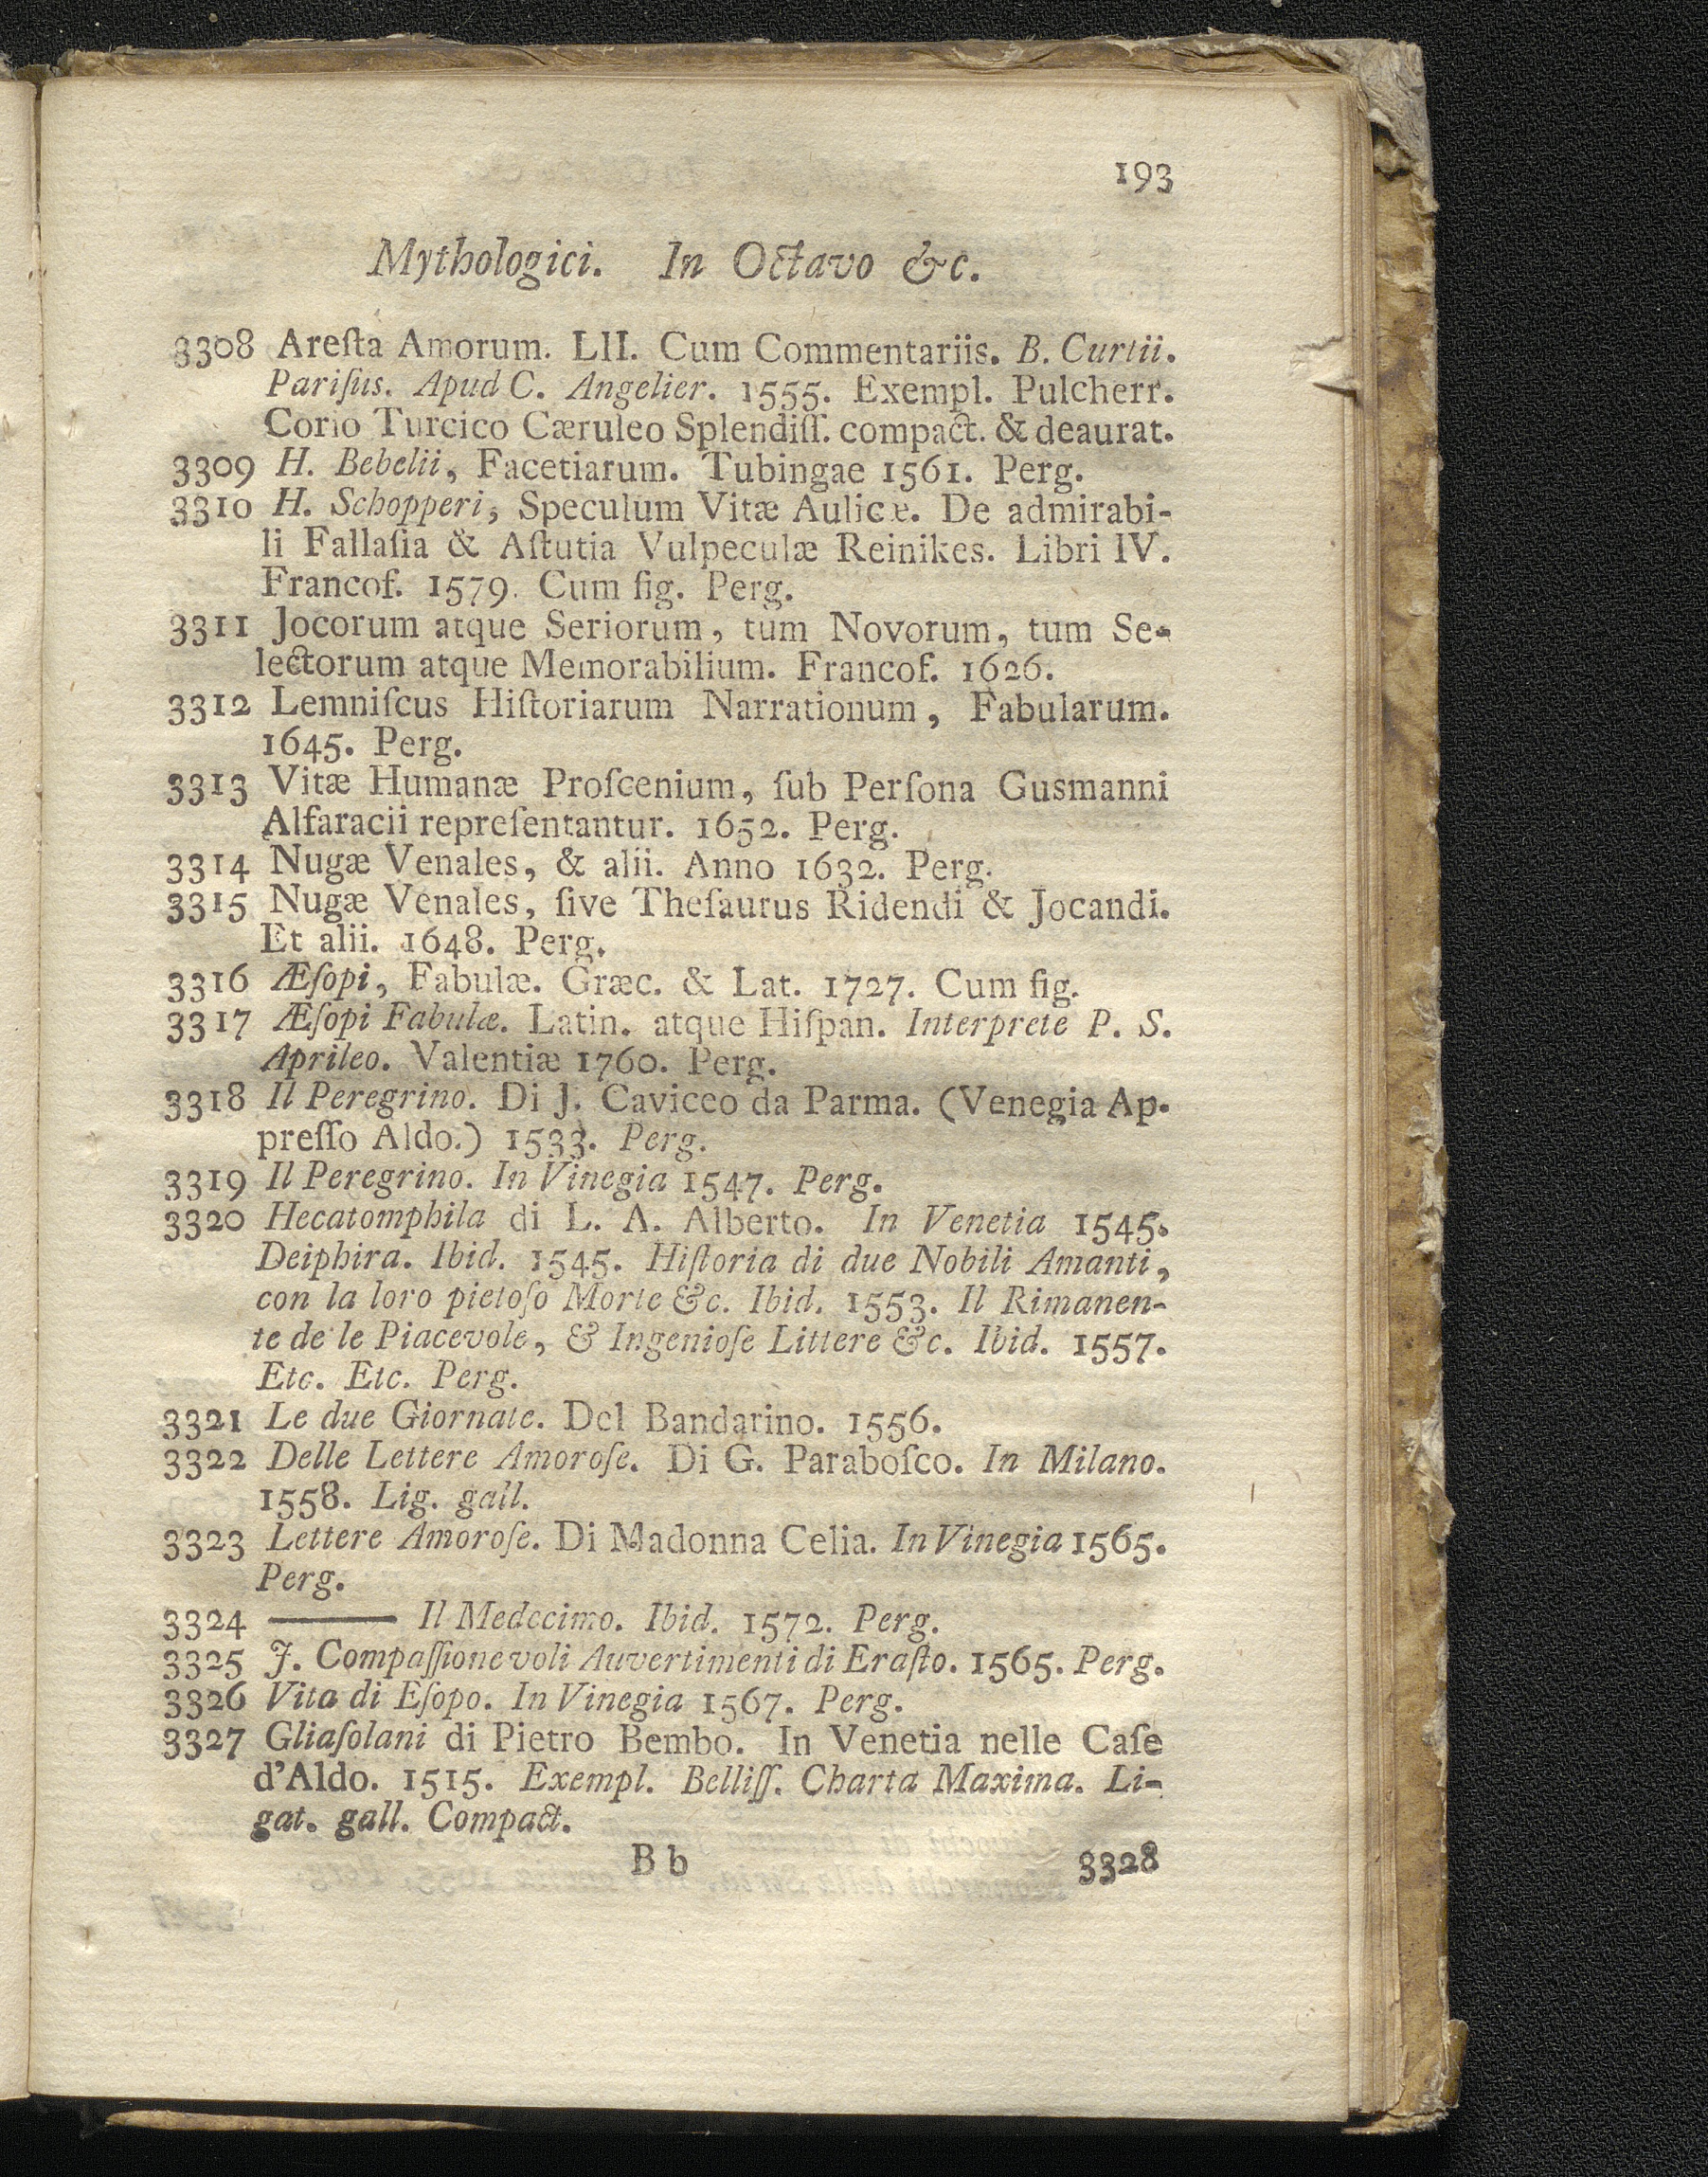 193
Mythologici. In Octavo &c.
3308 Areſta Amorum. LII. Cum Commentariis. B. Curtii.
Pariſus. Apud C. Angelier. 1555. Exempl. Pulcherr.
Corio Turcico Cæruleo Splendiſſ. compact. & deaurat.
3309 H. Bebelii, Facetiarum. Tubingae 1561. Perg.
3310 H. Schopperi, Speculum Vitæ Aulicæ. De admirabi-
li Fallaſia & Aſtutia Vulpeculæ Reinikes. Libri IV.
Francof. 1579. Cum fig. Perg.
3311 Jocorum atque Seriorum, tum Novorum, tum Se-
lectorum atque Memorabilium. Francof. 1626.
3312 Lemniſcus Hiſtoriarum Narrationum, Fabularum.
1645. Perg.
3313 Vitæ Humanæ Proſcenium, ſub Perſona Gusmanni
Alfaracii repreſentantur. 1652. Perg.
3314 Nugæ Venales, & alii. Anno 1632. Perg.
3315 Nugæ Venales, ſive Theſaurus Ridendi & Jocandi.
Et alii. 1648. Perg.
3316 Æſopi, Fabulæ. Græc. & Lat. 1727. Cum fig.
3317 Æſopi Fabulæ. Latin. atque Hiſpan. Interprete P. S.
Aprileo. Valentiæ 1760. Perg.
3318 Il Peregrino. Di J. Caviceo da Parma. (Venegia Ap-
preſſo Aldo.) 1533. Perg.
3319 Il Peregrino. In Vinegia 1547. Perg.
3320 Hecatomphila di L. A. Alberto. In Venetia 1545.
Deiphira. Ibid. 1545. Hiſtoria di due Nobili Amanti,
con la loro pietoſo Morte &c. Ibid. 1553. Il Rimanen-
te de le Piacevole, & Ingenioſe Littere &c. Ibid. 1557.
Etc. Etc. Perg.
3321 Le due Giornate. Del Bandarino. 1556.
3322 Delle Lettere Amoroſe. Di G. Paraboſco. In Milano.
1558. Lig. gall.
3323 Lettere Amoroſe. Di Madonna Celia. In Vinegia 1565.
Perg.
3324 ——— Il Medecimo. Ibid. 1572. Perg.
3325 J. Compaſſionevoli Auvertimenti di Eraſto. 1565. Perg.
3326 Vita di Eſopo. In Vinegia 1567. Perg.
3327 Gliaſolani di Pietro Bembo. In Venetia nelle Caſe
d'Aldo. 1515. Exempl. Belliſſ. Charta Maxima. Li-
gat. gall. Compact.
B b 3328